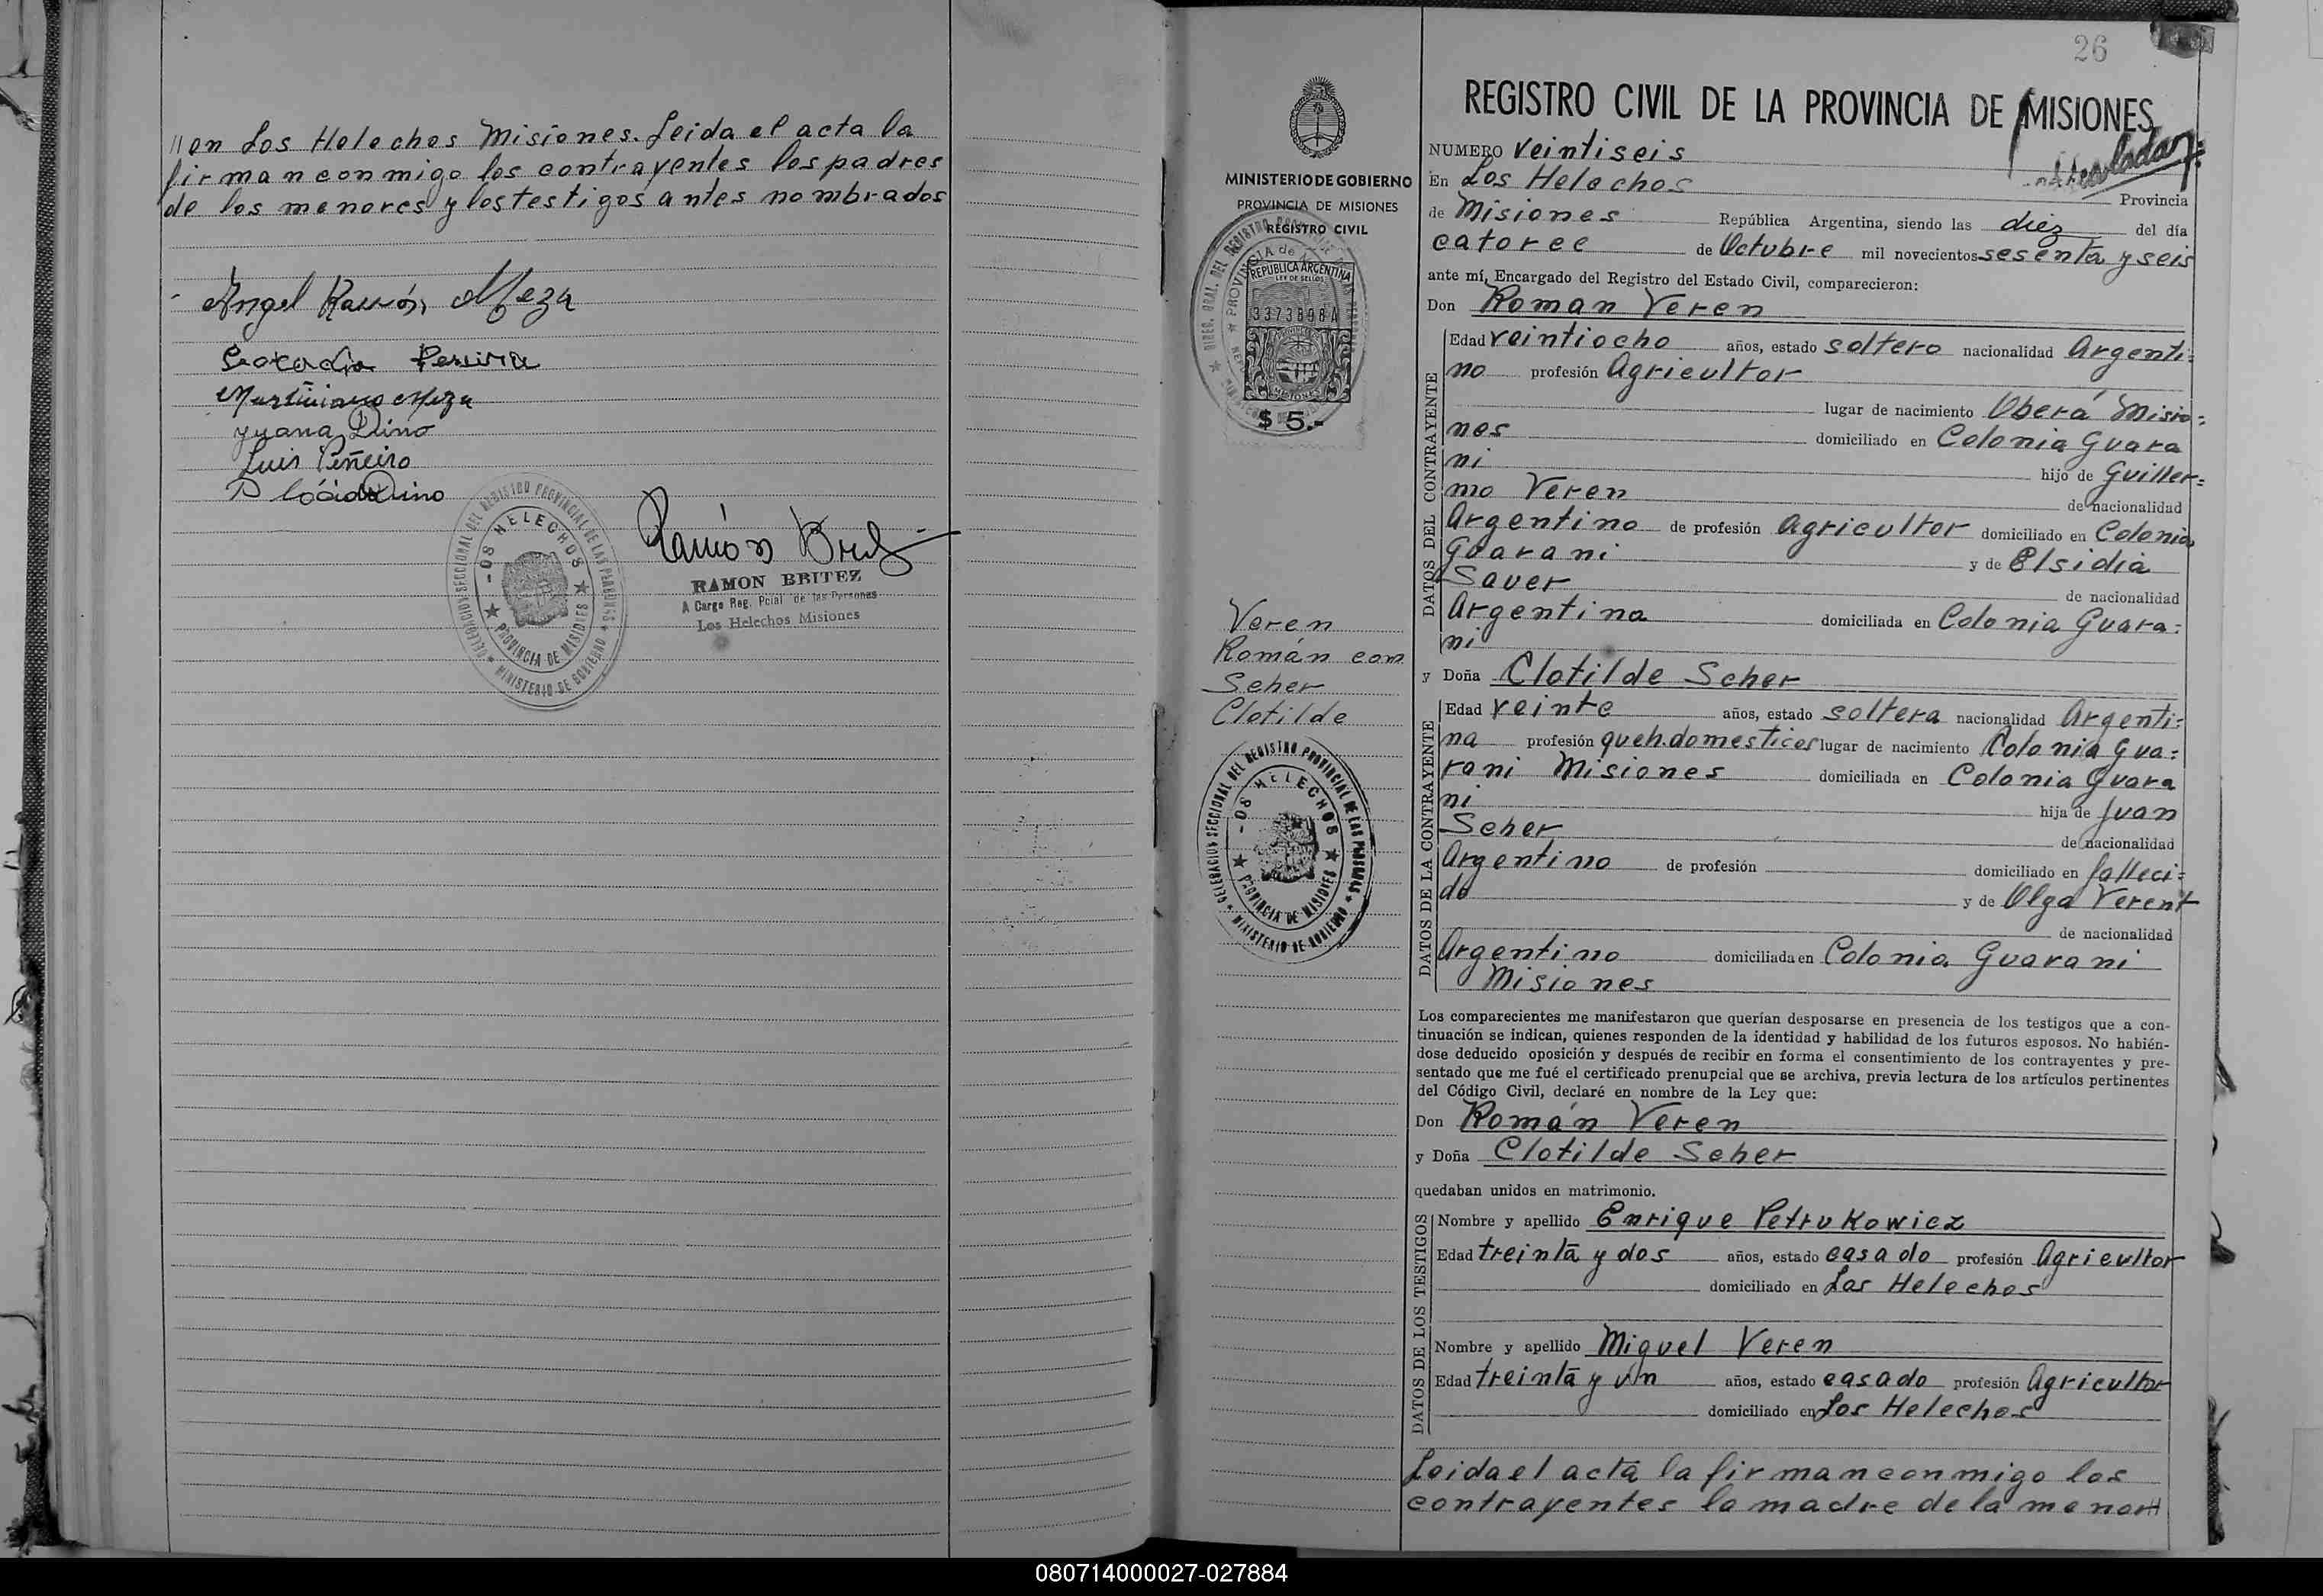 //en Los Helechos Misiones. Leida el acta la
firman conmigo los contrayentes los padres
de los menores y los testigos antes nombrados
Angel Ramón Meza
Martiniano Meza
Juana Dino
Luis Piñeiro
DELEGACION SECCIONAL DEL REGISTRO PROVINCIAL DE LAS PERSONAS
LOS HELECHOS
PROVINCIA DE MISIONES
MINISTERIO DE GOBIERNO
Ramón
RAMON BRITEZ
A Cargo Reg. Pcial de las Personas
Los Helechos Misiones
26
MINISTERIO DE GOBIERNO
PROVINCIA DE MISIONES
REGISTRO CIVIL
REPUBLICA ARGENTINA
LEY DE SELLOS
3373898A
MISIONES
$ 5.-
Veren
Román con
Scher
Clotilde
DELEGACION SECCIONAL DEL REGISTRO PROVINCIAL DE LAS PERSONAS
LOS HELECHOS
PROVINCIA DE MISIONES
MINISTERIO DE GOBIERNO
REGISTRO CIVIL DE LA PROVINCIA DE MISIONES
NUMERO Veintiseis
En Los Helechos Provincia
de Misiones República Argentina, siendo las diez del día
catorce de Octubre mil novecientos sesenta y seis
ante mí, Encargado del Registro del Estado Civil, comparecieron:
Don Roman Veren
DATOS DEL CONTRAYENTE
Edad veintiocho años, estado soltero nacionalidad Argenti=
no profesión Agricultor
lugar de nacimiento Oberá Misio=
nes domiciliado en Colonia Guara
ni hijo de Guiller=
mo Veren de nacionalidad
Argentino de profesión Agricultor domiciliado en Colonia
Guarani y de Elsidia
Sauer de nacionalidad
Argentina domiciliada en Colonia Guara=
ni
y Doña Clotilde Scher
DATOS DE LA CONTRAYENTE
Edad veinte años, estado soltera nacionalidad Argenti=
na profesión queh. domesticos lugar de nacimiento Colonia Gua=
rani Misiones domiciliada en Colonia Guara
ni hija de Juan
Scher de nacionalidad
Argentino de profesión domiciliado en falleci=
do y de Olga Verent
de nacionalidad
Argentino domiciliada en Colonia Guarani
Misiones
Los comparecientes me manifestaron que querían desposarse en presencia de los testigos que a con-
tinuación se indican, quienes responden de la identidad y habilidad de los futuros esposos. No habién-
dose deducido oposición y después de recibir en forma el consentimiento de los contrayentes y pre-
sentado que me fué el certificado prenupcial que se archiva, previa lectura de los artículos pertinentes
del Código Civil, declaré en nombre de la Ley que:
Don Román Veren
y Doña Clotilde Scher
quedaban unidos en matrimonio.
DATOS DE LOS TESTIGOS
Nombre y apellido Enrique Petrukowicz
Edad treinta y dos años, estado casado profesión Agricultor
domiciliado en Los Helechos
Nombre y apellido Miguel Veren
Edad treinta y un años, estado casado profesión Agricultor
domiciliado en Los Helechos
Leida el acta la firman conmigo los
contrayentes la madre de la menor//
080714000027-027884